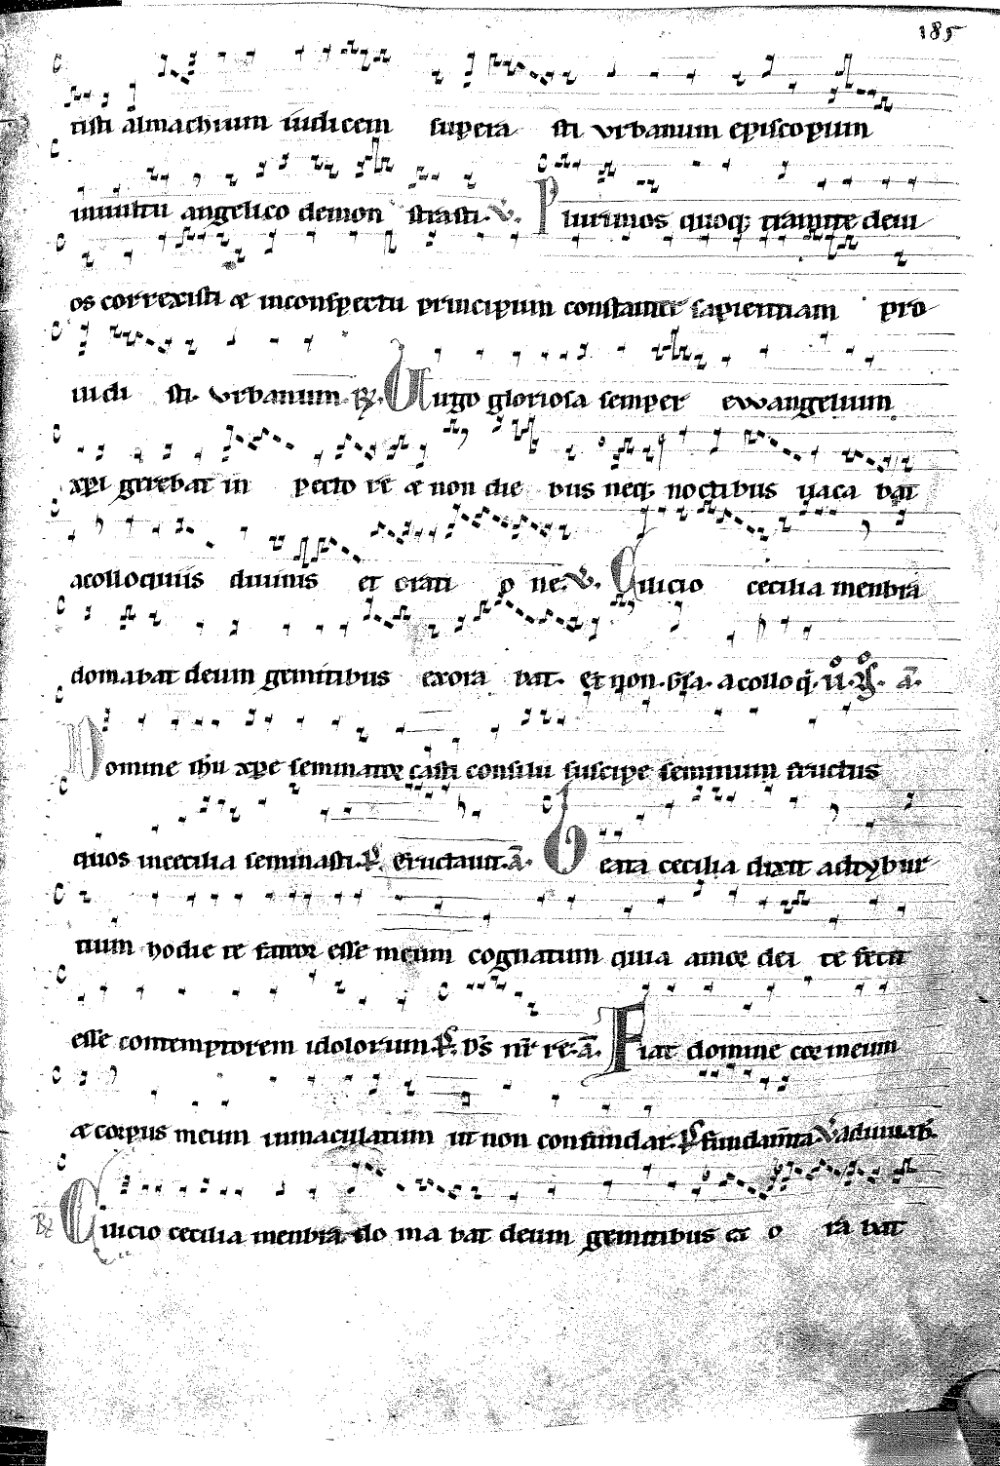 185
tisti almachium iudicem supera sti vrbanum episcopum
inuultu angelico demon strasti. V. Plurimos quoq; tramite deui
os correxisti et inconspectu principum constanter sapientiam pro
iudi sti. vrbanum. R. Uirgo gloriosa semper ewangelium
xpi gerebat in pecto re et non die bus neq; noctibus uaca bat
acolloquiis diuinis et orati o ne. V. Cilicio cecilia menbra
domabat deum gemitibus exora bat. et non. a colloq.
Domine ihu xpe seminator casti consilii suscipe seminum fructus
quos incecilia seminasti. p. Eructauit. a. Beata cecilia dixit adtybur
tium hodie te fateor esse meum cognatum quia amor dei te fecit
esse contemptorem idolorum. p. Ds nr re. a. Fiat domine cor meum
et corpus meum inmaculatum ut non confundar. p. fundamta V adiuuab.
R Cilicio cecilia menbra do ma bat deum gemitibus et o ra bat